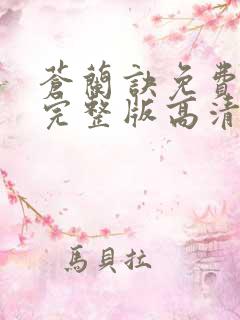 蒼蘭訣免費
完整版高清
馬貝拉